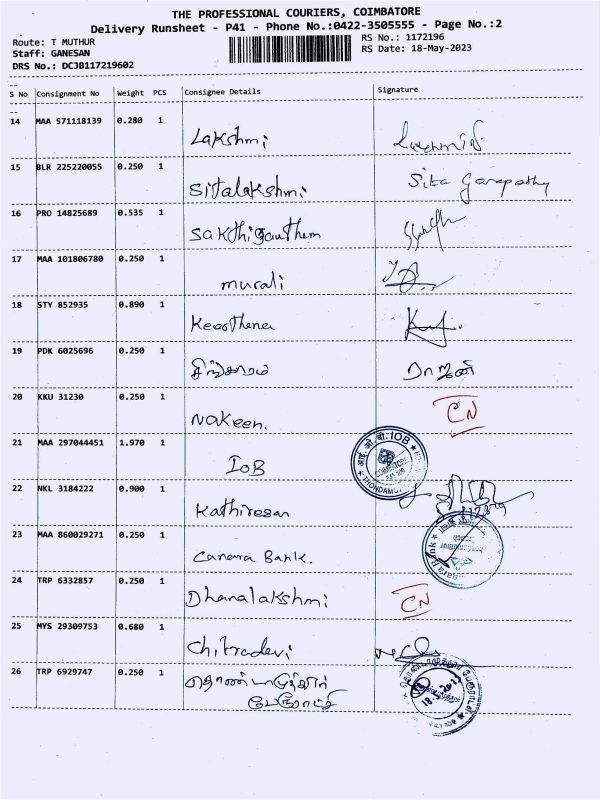 THE PROFESSIONAL COURIERS, COIMBATORE
Delivery Runsheet - P41 - Phone No.:0422-3505555 - Page No.:2
Route: T MUTHUR
Staff: GANESAN
DRS No.: DCJB117219602
RS No.: 1172196
RS Date: 18-May-2023
S No Consignment No Weight PCS Consignee Details Signature
14 MAA 571118139 0.280 1 Lakshmi
15 BLR 225220055 0.250 1 Sitalakshmi Sita Ganapathy
16 PRO 14825689 0.535 1 Sakthigautham
17 MAA 101806780 0.250 1 murali
18 STY 852935 0.890 1 Keerthena
19 PDK 6025696 0.250 1 சிங்காரம் ராஜன்
20 KKU 31230 0.250 1 Nakeen. CN
21 MAA 297044451 1.970 1 IoB
आई.ओ.बी. IOB
22 NKL 3184222 0.900 1 Kathiresan
23 MAA 860029271 0.250 1 Canara Bank.
24 TRP 6332857 0.250 1 Dhanalakshmi CN
25 MYS 29309753 0.680 1 Chitradevi
26 TRP 6929747 0.250 1 தொண்டாமுத்தூர்